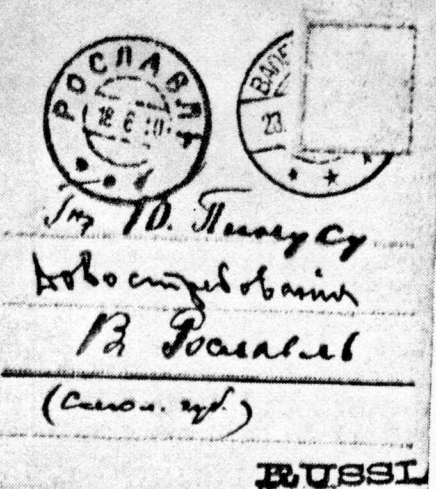 РОСЛАВЛЬ
18.6.10
23.
Ю. Пинусу
до востребования
В Рославль
(Смол. губ.)
RUSSL